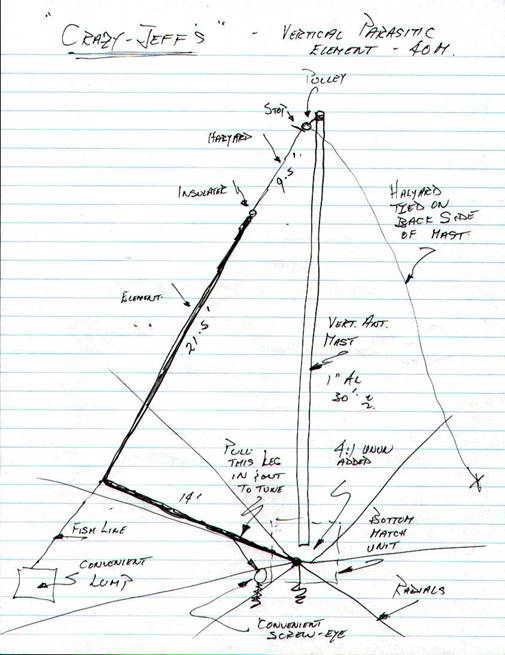 "CRAZY-JEFF'S" - VERTICAL PARASITIC
ELEMENT - 40M.
PULLEY
STOP
HALYARD
9.5'
INSULATER
HALYARD
TIED ON
BACK SIDE
OF MAST
ELEMENT
21.5'
VERT. ANT.
MAST
1" AL
30'
PULL
THIS LEG
IN & OUT
TO TUNE
4:1 UNUN
ADDED
14'
FISH LINE
BOTTOM
MATCH
UNIT
CONVENIENT
LUMP
RADIALS
CONVENIENT
SCREW-EYE